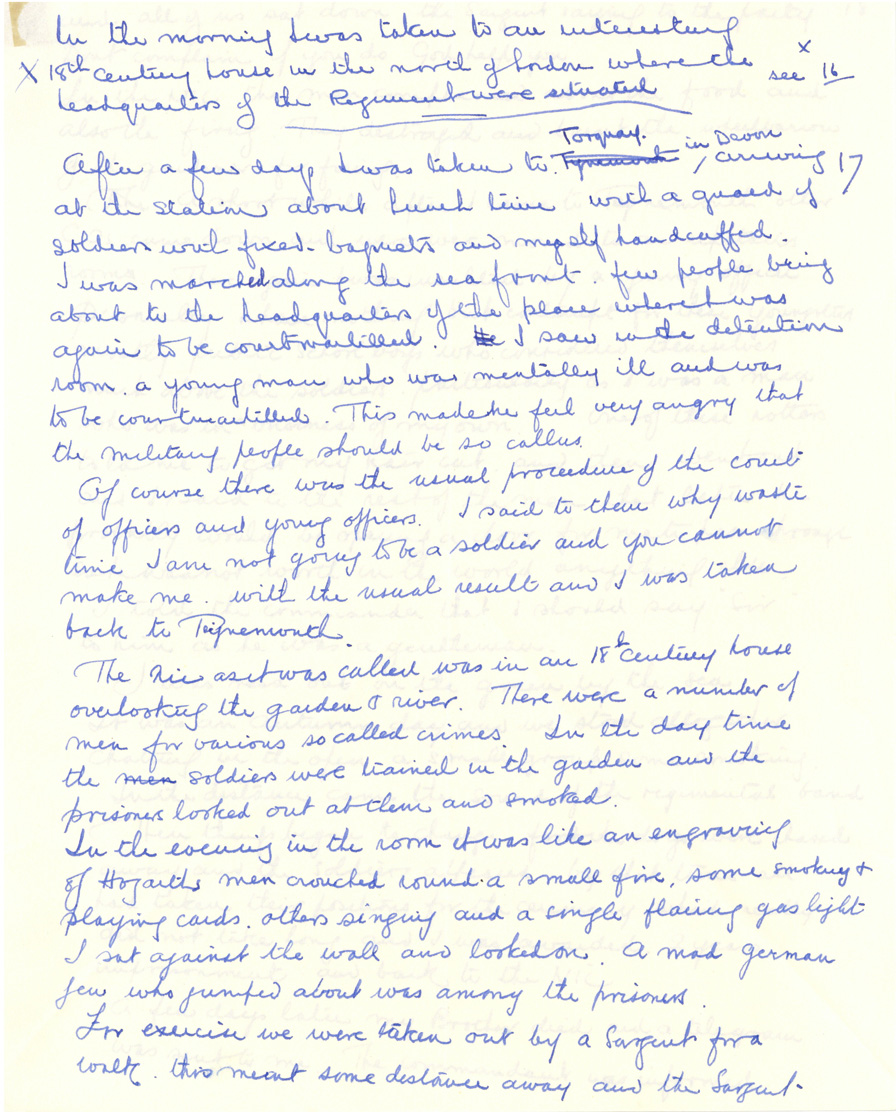 In the morning I was taken to an interesting
X 18th Century house in the north of London where the see X 16
headquaiters of the Regiment were situated
After a few days I was taken to Torquay. Tynemouth in Devon, arriving 17
at the station about lunch time with a guard of
soldiers with fixed bagnets and myself handcuffed.
I was marched along the sea front. few people being
about to the headquarters of the place where I was
again to be courtmartilled. He I saw in the detention
room. a young man who was mentally ill and was
to be courtmartilled. This made me feel very angry that
the military people should be so callus.
Of course there was the usual procedure of the court
of officers and young officers. I said to them why waste
time I am not going to be a soldier and you cannot
make me. with the usual result and I was taken
back to Tignemouth.
The Nic as it was called was in an 18th Century house
overlooking the garden & river. There were a number of
men for various so called crimes. In the day time
the men soldiers were trained in the garden and the
prisoners looked out at them and smoked.
In the evening in the room it was like an engraving
of Hogarths men crouched round a small fire, some smoking &
playing cards, others singing and a single flairing gas light
I sat against the wall and looked on. A mad german
jew who jumped about was among the prisoners.
For exercise we were taken out by a Sargent for a
walk. this meant some distance away and the Sargent.